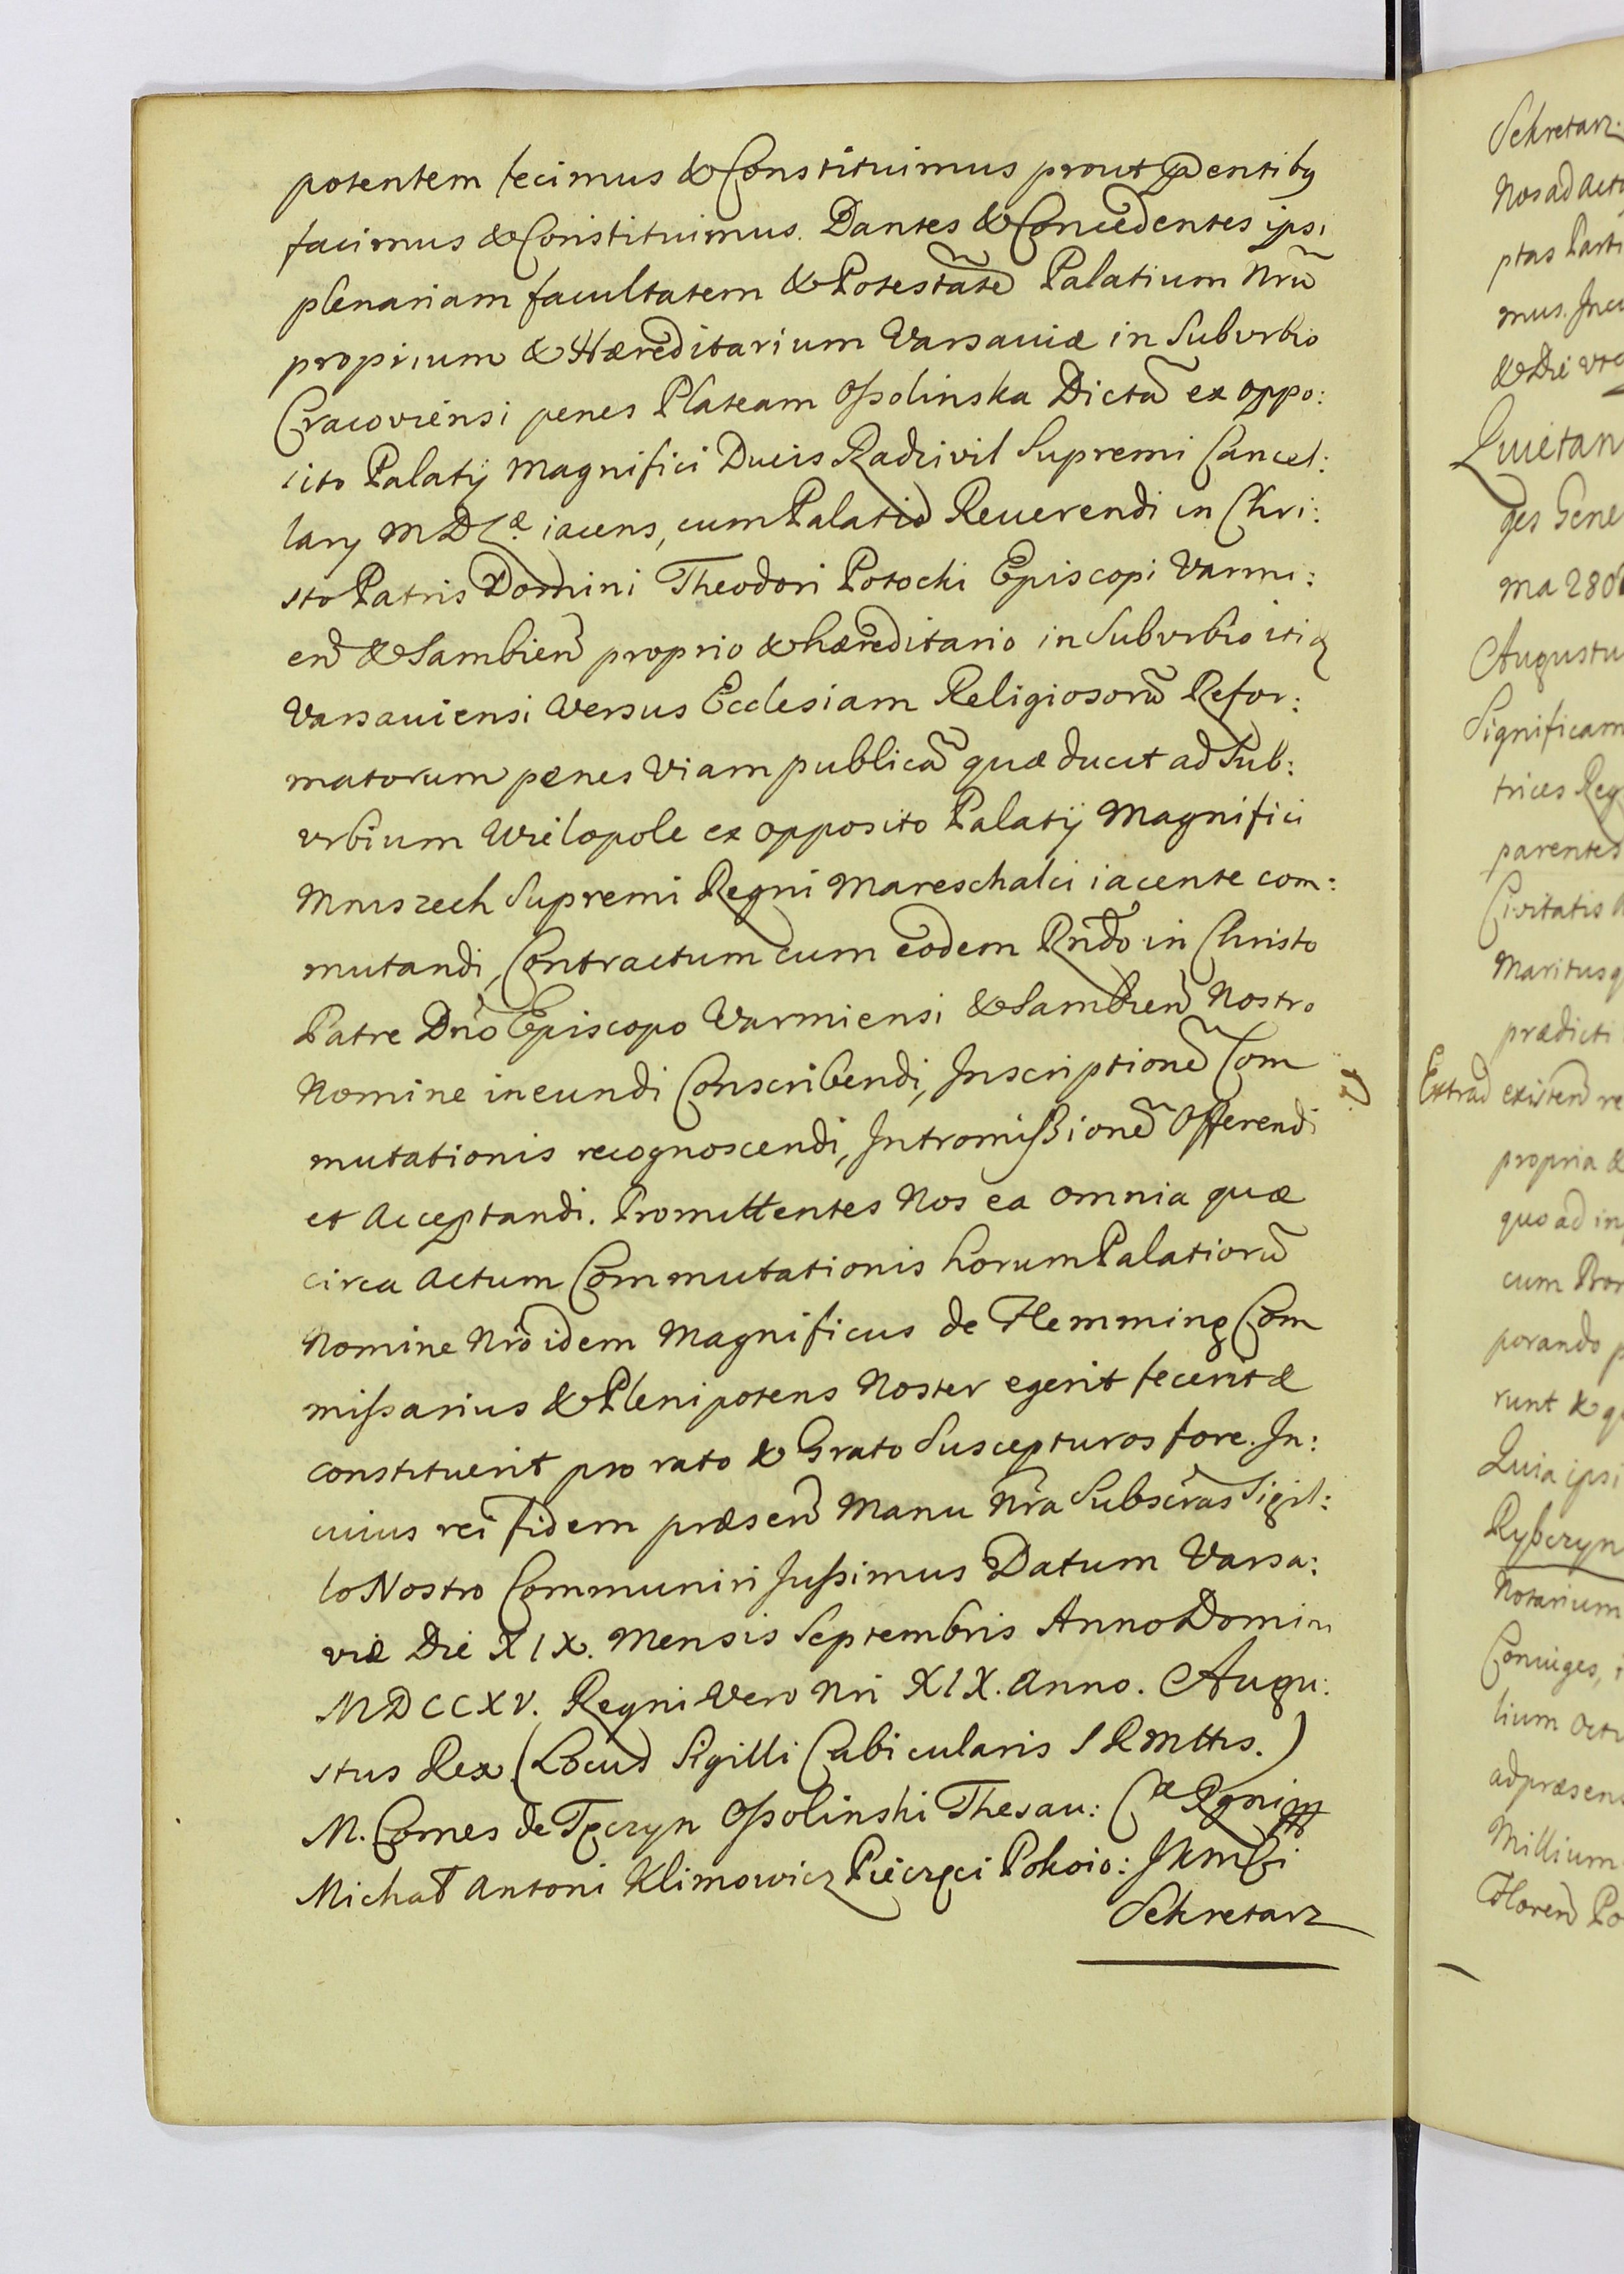 potentem fecimus & Constituimus prout pñtibus
facimus & Constituimus. Dantes & Concedentes ipsi
plenariam facultatem & Potestatẽ Palatium Nrũ
proprium & Hæreditarium Varsaviæ in Suburbio
Cracoviensi penes Plateam Ossolinska Dictã ex oppo:
sito Palatij Magnifici Ducis Radzivil Supremi Cancel:
larij M D Læ: iacens, cum Palatio Reuerendi in Chri:
sto Patris Domini Theodori Potocki Episcopi Varmi:
eñ & Sambieñ proprio & hæreditario in Suburbio itidẽ
Varsauiensi versus Ecclesiam Religiosorũ Refor:
matorum penes viam publicã quæ ducit ad Sub:
urbium Wielopole ex opposito Palatij Magnifici
Mniszech Supremi Regni Mareschalci iacente com:
mutandi, Contractum cum eodem Rñdo in Christo
Patre Dño Episcopo Varmiensi & Sambieñ Nostro
Nomine ineundi Conscribendi, Inscriptionẽ Com
mutationis recognoscendi, Intromissionẽ Offerendi
et Acceptandi. Promittentes Nos ea omnia quæ
circa Actum Commutationis horum Palatiorũ
Nomine Nrõ idem Magnificus de Flemming Com
missarius & Plenipotens Noster egerit fecerit &
constituerit pro rato & Grato Suscepturos fore. In:
cuius rei fidem præseñ Manu Nrã Subscrãs Sigil:
lo Nostro Communiri Jussimus Datum Varsa:
viæ Die XIX. Mensis Septembris Anno Domini
MDCCXV. Regni Vero Nri XIX. Anno. Augu:
stus Rex. (Locus Sigilli Cubicularis S R Mttis.)
M. Comes de Tęczyn Ossolinski Thesau: Cæ Regni mp
Michał Antoni Klimowicz Pieczęci Pokoio: JKMści
Sekretarz
Sekretarz
Nos ad Acta
ptas Parti
mus.
& Die
Quietan
ges Gene
ma 280
Augustu
Significam
trices Reg
parentes
Civitatis
Maritus q
prædicti
Extrad existeñ re
propria &
quo ad in
cum
porando p
runt & q
Quia ipsi
Rybczyn
Notarium
Coniuges,
lium Octu
ad præsens
Millium
Floreñ Po